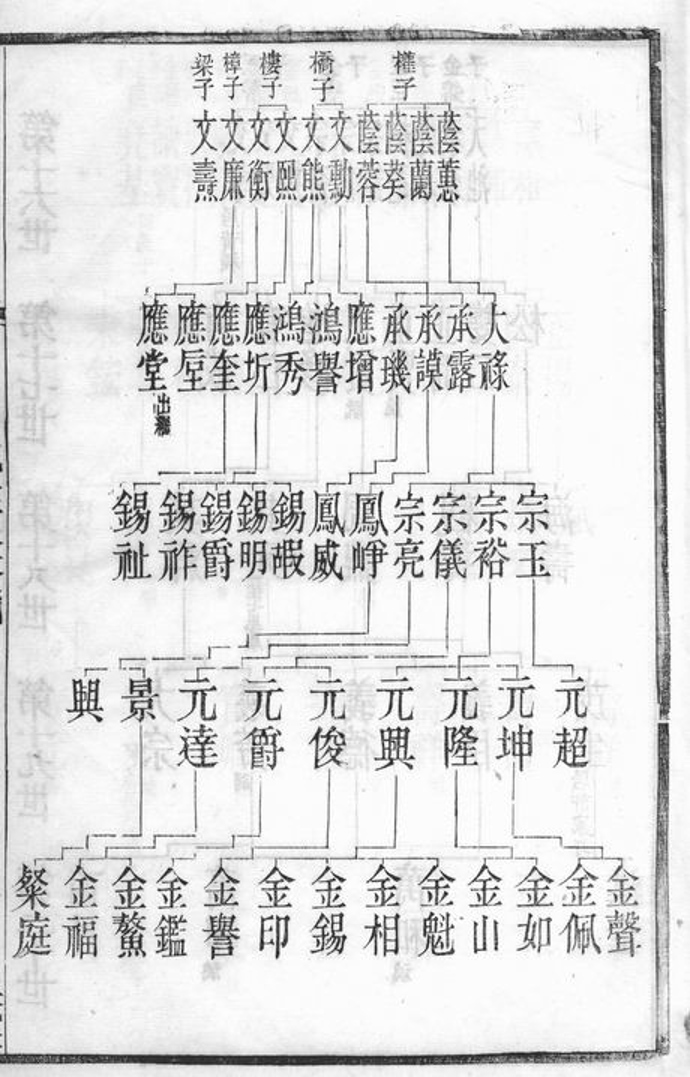 權子
橋子
樓子
樟子
梁子
蔭蕙
蔭蘭
蔭葵
蔭蓉
文勳
文熊
文熙
文衡
文廉
文燾
大祿
承露
承謨
承璣
應增
鴻譽
鴻秀
應圻
應奎
應垕
應堂
出繼
宗玉
宗裕
宗儀
宗亮
鳳崢
鳳威
錫嘏
錫明
錫爵
錫祚
錫祉
元超
元坤
元隆
元興
元俊
元爵
元達
景
興
金聲
金佩
金如
金山
金魁
金相
金錫
金印
金譽
金鑑
金鰲
金福
粲庭